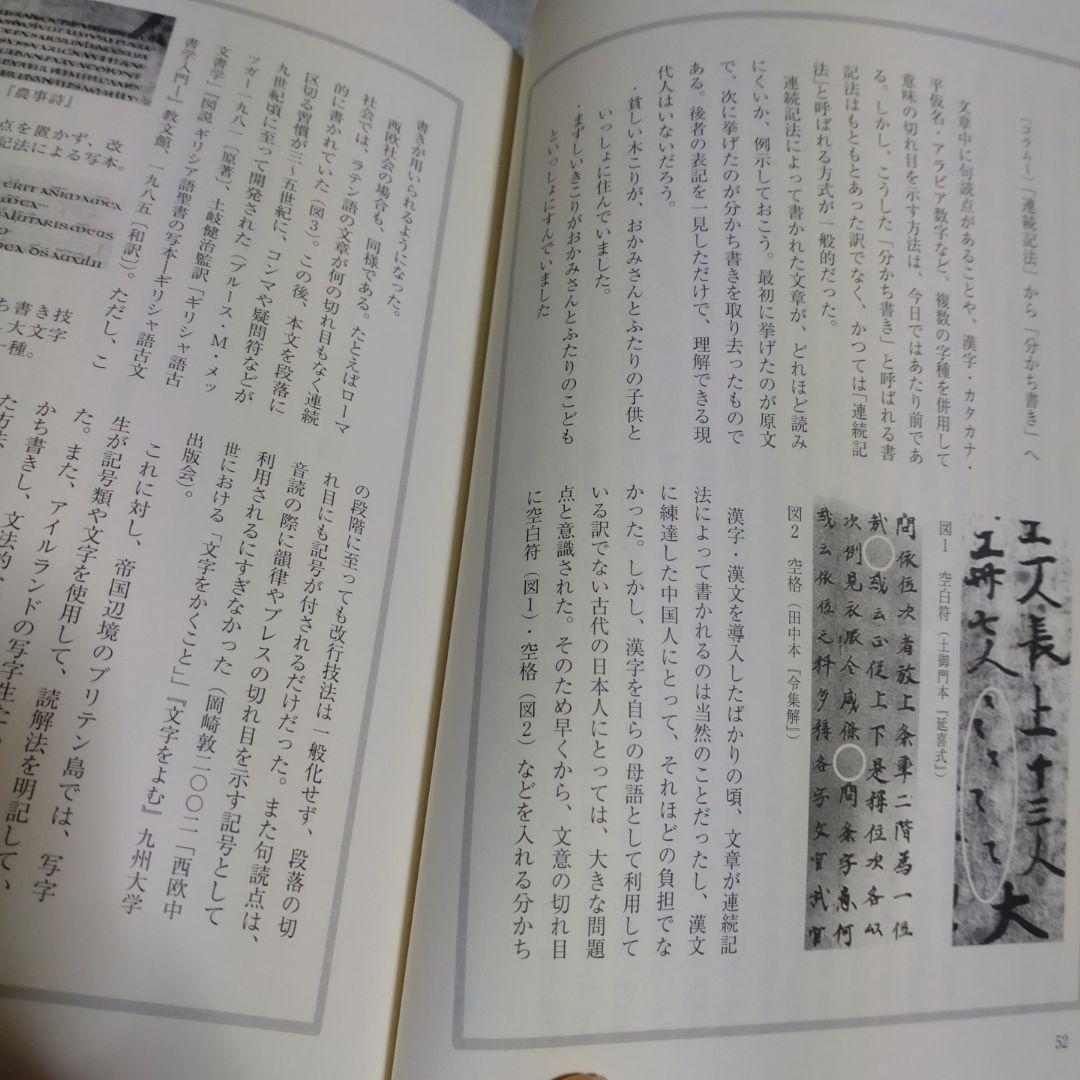 〔コラム1〕「連続記法」から「分かち書き」へ
文章中に句読点があることや、漢字・カタカナ・
平仮名・アラビア数字など、複数の字種を併用して
意味の切れ目を示す方法は、今日ではあたり前であ
る。しかし、こうした「分かち書き」と呼ばれる書
記法はもともとあった訳でなく、かつては「連続記
法」と呼ばれる方式が一般的だった。
連続記法によって書かれた文章が、どれほど読み
にくいか、例示しておこう。最初に挙げたのが原文
で、次に挙げたのが分かち書きを取り去ったもので
ある。後者の表記を一見しただけで、理解できる現
代人はいないだろう。
・貧しい木こりが、おかみさんとふたりの子供と
いっしょに住んでいました。
・まずしいきこりがおかみさんとふたりのこども
といっしょにすんでいました
工人長上十三人大
図1 空白符（土御門本『延喜式』）
間依位次者放上条車二階為一位
哉 或云正従上下是擇位次各以
次例見衣服令咸條 問条字意何
或云依位之科多擇各字文官武官
図2 空格（田中本『令集解』）
漢字・漢文を導入したばかりの頃、文章が連続記
法によって書かれるのは当然のことだったし、漢文
に練達した中国人にとって、それほどの負担でな
かった。しかし、漢字を自らの母語として利用して
いる訳でない古代の日本人にとっては、大きな問題
点と意識された。そのため早くから、文意の切れ目
に空白符（図1）・空格（図2）などを入れる分かち
52
書きが用いられるようになった。
西欧社会の場合も、同様である。たとえばローマ
社会では、ラテン語の文章が何の切れ目もなく連続
的に書かれていた（図3）。この後、本文を段落に
区切る習慣が三〜五世紀に、コンマや疑問符などが
九世紀頃に至って開発された（ブルース・M・メッ
ツガー一九八一［原著］、土岐健治監訳『ギリシャ語古
文書学』［図説 ギリシア語聖書の写本―ギリシャ語古文
書学入門―］教文館、一九八五［和訳］）。ただし、こ
『農事詩』
点を置かず、改
記法による写本。
技字
き文
書大
一種。
の段階に至っても改行技法は一般化せず、段落の切
れ目にも記号が付されるだけだった。また句読点は、
音読の際に韻律やブレスの切れ目を示す記号として
利用されるにすぎなかった（岡崎敦二〇〇二「西欧中
世における「文字をかくこと」」『文字をよむ』九州大学
出版会）。
これに対し、帝国辺境のブリテン島では、写字
生が記号類や文字を使用して、読解法を明記して、
た。また、アイルランドの写字生た
かち書きし、文法的、
た方法